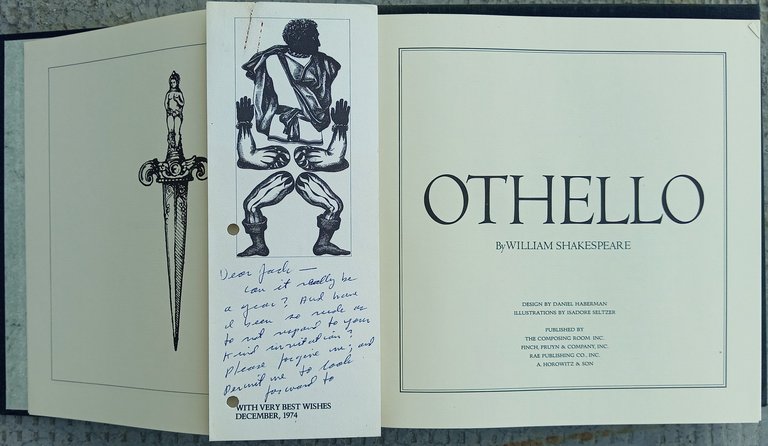 Dear Jack —
Can it really be
a year? And have
I been so rude as
to not respond to your
kind invitation?
Please forgive me, and
permit me to look
forward to
WITH VERY BEST WISHES
DECEMBER, 1974
OTHELLO
By WILLIAM SHAKESPEARE
DESIGN BY DANIEL HABERMAN
ILLUSTRATIONS BY ISADORE SELTZER
PUBLISHED BY
THE COMPOSING ROOM, INC.
FINCH, PRUYN & COMPANY, INC.
RAE PUBLISHING CO., INC.
A. HOROWITZ & SON